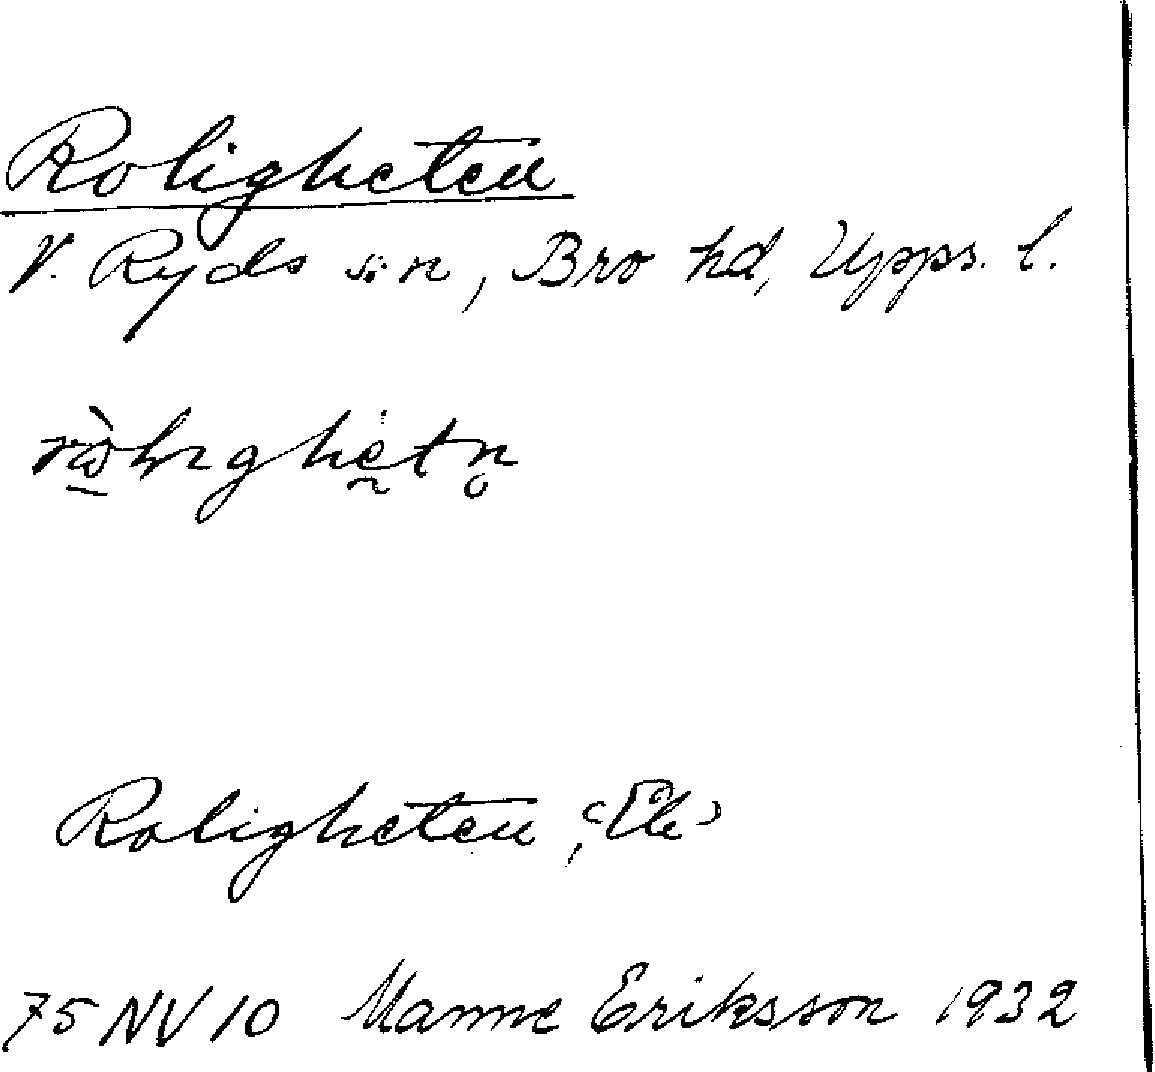 Roligheten
V. Ryds sn, Bro hd, Upps. l.
Roligheten,
75 NV 10 Manne Eriksson 1932